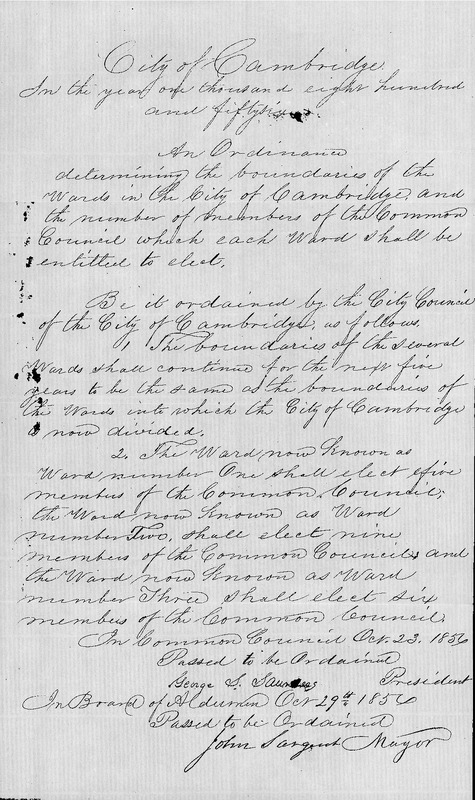 City of Cambridge.
In the year one thousand eight hundred
and fiftysix
An Ordinance
determining the boundaries of the
Wards in the City of Cambridge, and
the number of members of the Common
Council which each Ward shall be
entitled to elect.
Be it ordained by the City Council
of the City of Cambridge, as follows.
1. The boundaries of the several
Wards shall continue for the next five
years to be the same as the boundaries of
the Wards into which the City of Cambridge
is now divided.
2. The Ward now known as
Ward number One shall elect five
members of the Common Council;
the Ward now known as Ward
number Two, shall elect nine
members of the Common Council; and
the Ward now known as Ward
number Three shall elect six
members of the Common Council.
In Common Council Oct. 23. 1856
Passed to be Ordained
George S. Saunders President
In Board of Aldermen Oct 29th 1856
Passed to be Ordained
John Sargent Mayor